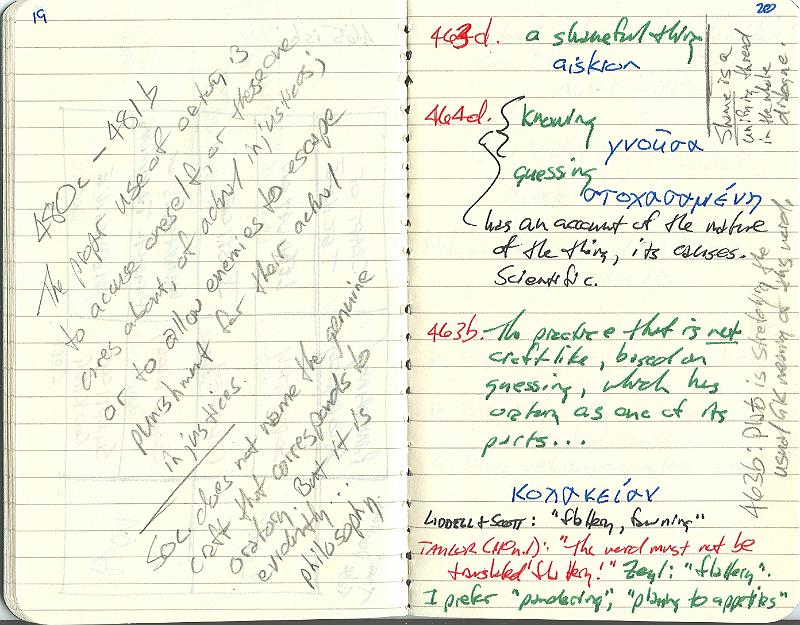 19
480c - 481b
The proper use of oratory is
to accuse oneself, or those one
cares about, of actual injustices;
or to allow enemies to escape
punishment for their actual
injustices.
Soc. does not name the genuine
craft that corresponds to
oratory. But it is
evidently...
philosophy.
200
463d. a shameful thing
aiskron
Shame is a
unifying thread
in the whole
dialogue.
464d. knowing
γνοῦσα
guessing
στοχασαμένη
has an account of the nature
of the thing, its causes.
Scientific.
463b. The practice that is not
craftlike, based on
guessing, which has
oratory as one of its
parts...
463b: Plato is stretching the
usual GK meaning of this word.
κολακείαν
LIDDELL & SCOTT: "flattery, fawning"
TAYLOR: "The word must not be
translated 'flattery'!" Zeyl: "flattery".
I prefer "pandering", "playing to appetites"